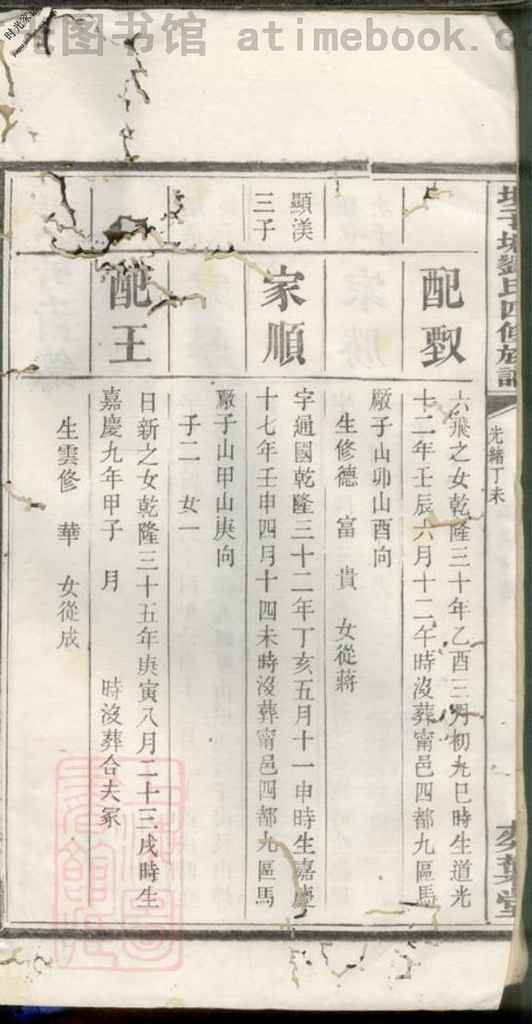 图书馆 atimebook.com
劉氏四修族譜
光緒丁未
葉堂
配
六飛之女乾隆三十年乙酉三月初九巳時生道光
十二年壬辰六月十二午時沒葬甯邑四都九區馬
廠子山卯山酉向
生修德 富 貴 女從蔣
顯渼
三子
家順
字通國乾隆三十二年丁亥五月十一申時生嘉慶
十七年壬申四月十四未時沒葬甯邑四都九區馬
廠子山甲山庚向
子二 女一
配王
日新之女乾隆三十五年庚寅八月二十三戌時生
嘉慶九年甲子 月 時沒葬合夫冢
生雲修 華 女從成